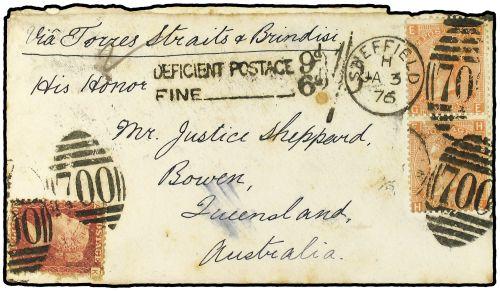 Via Torres Straits & Brindisi
DEFICIENT POSTAGE 9d
FINE 6d
SHEFFIELD
H
JA 3
76
His Honor
Mr. Justice Sheppard,
Bowen,
Queensland,
Australia.
700
700
700
700